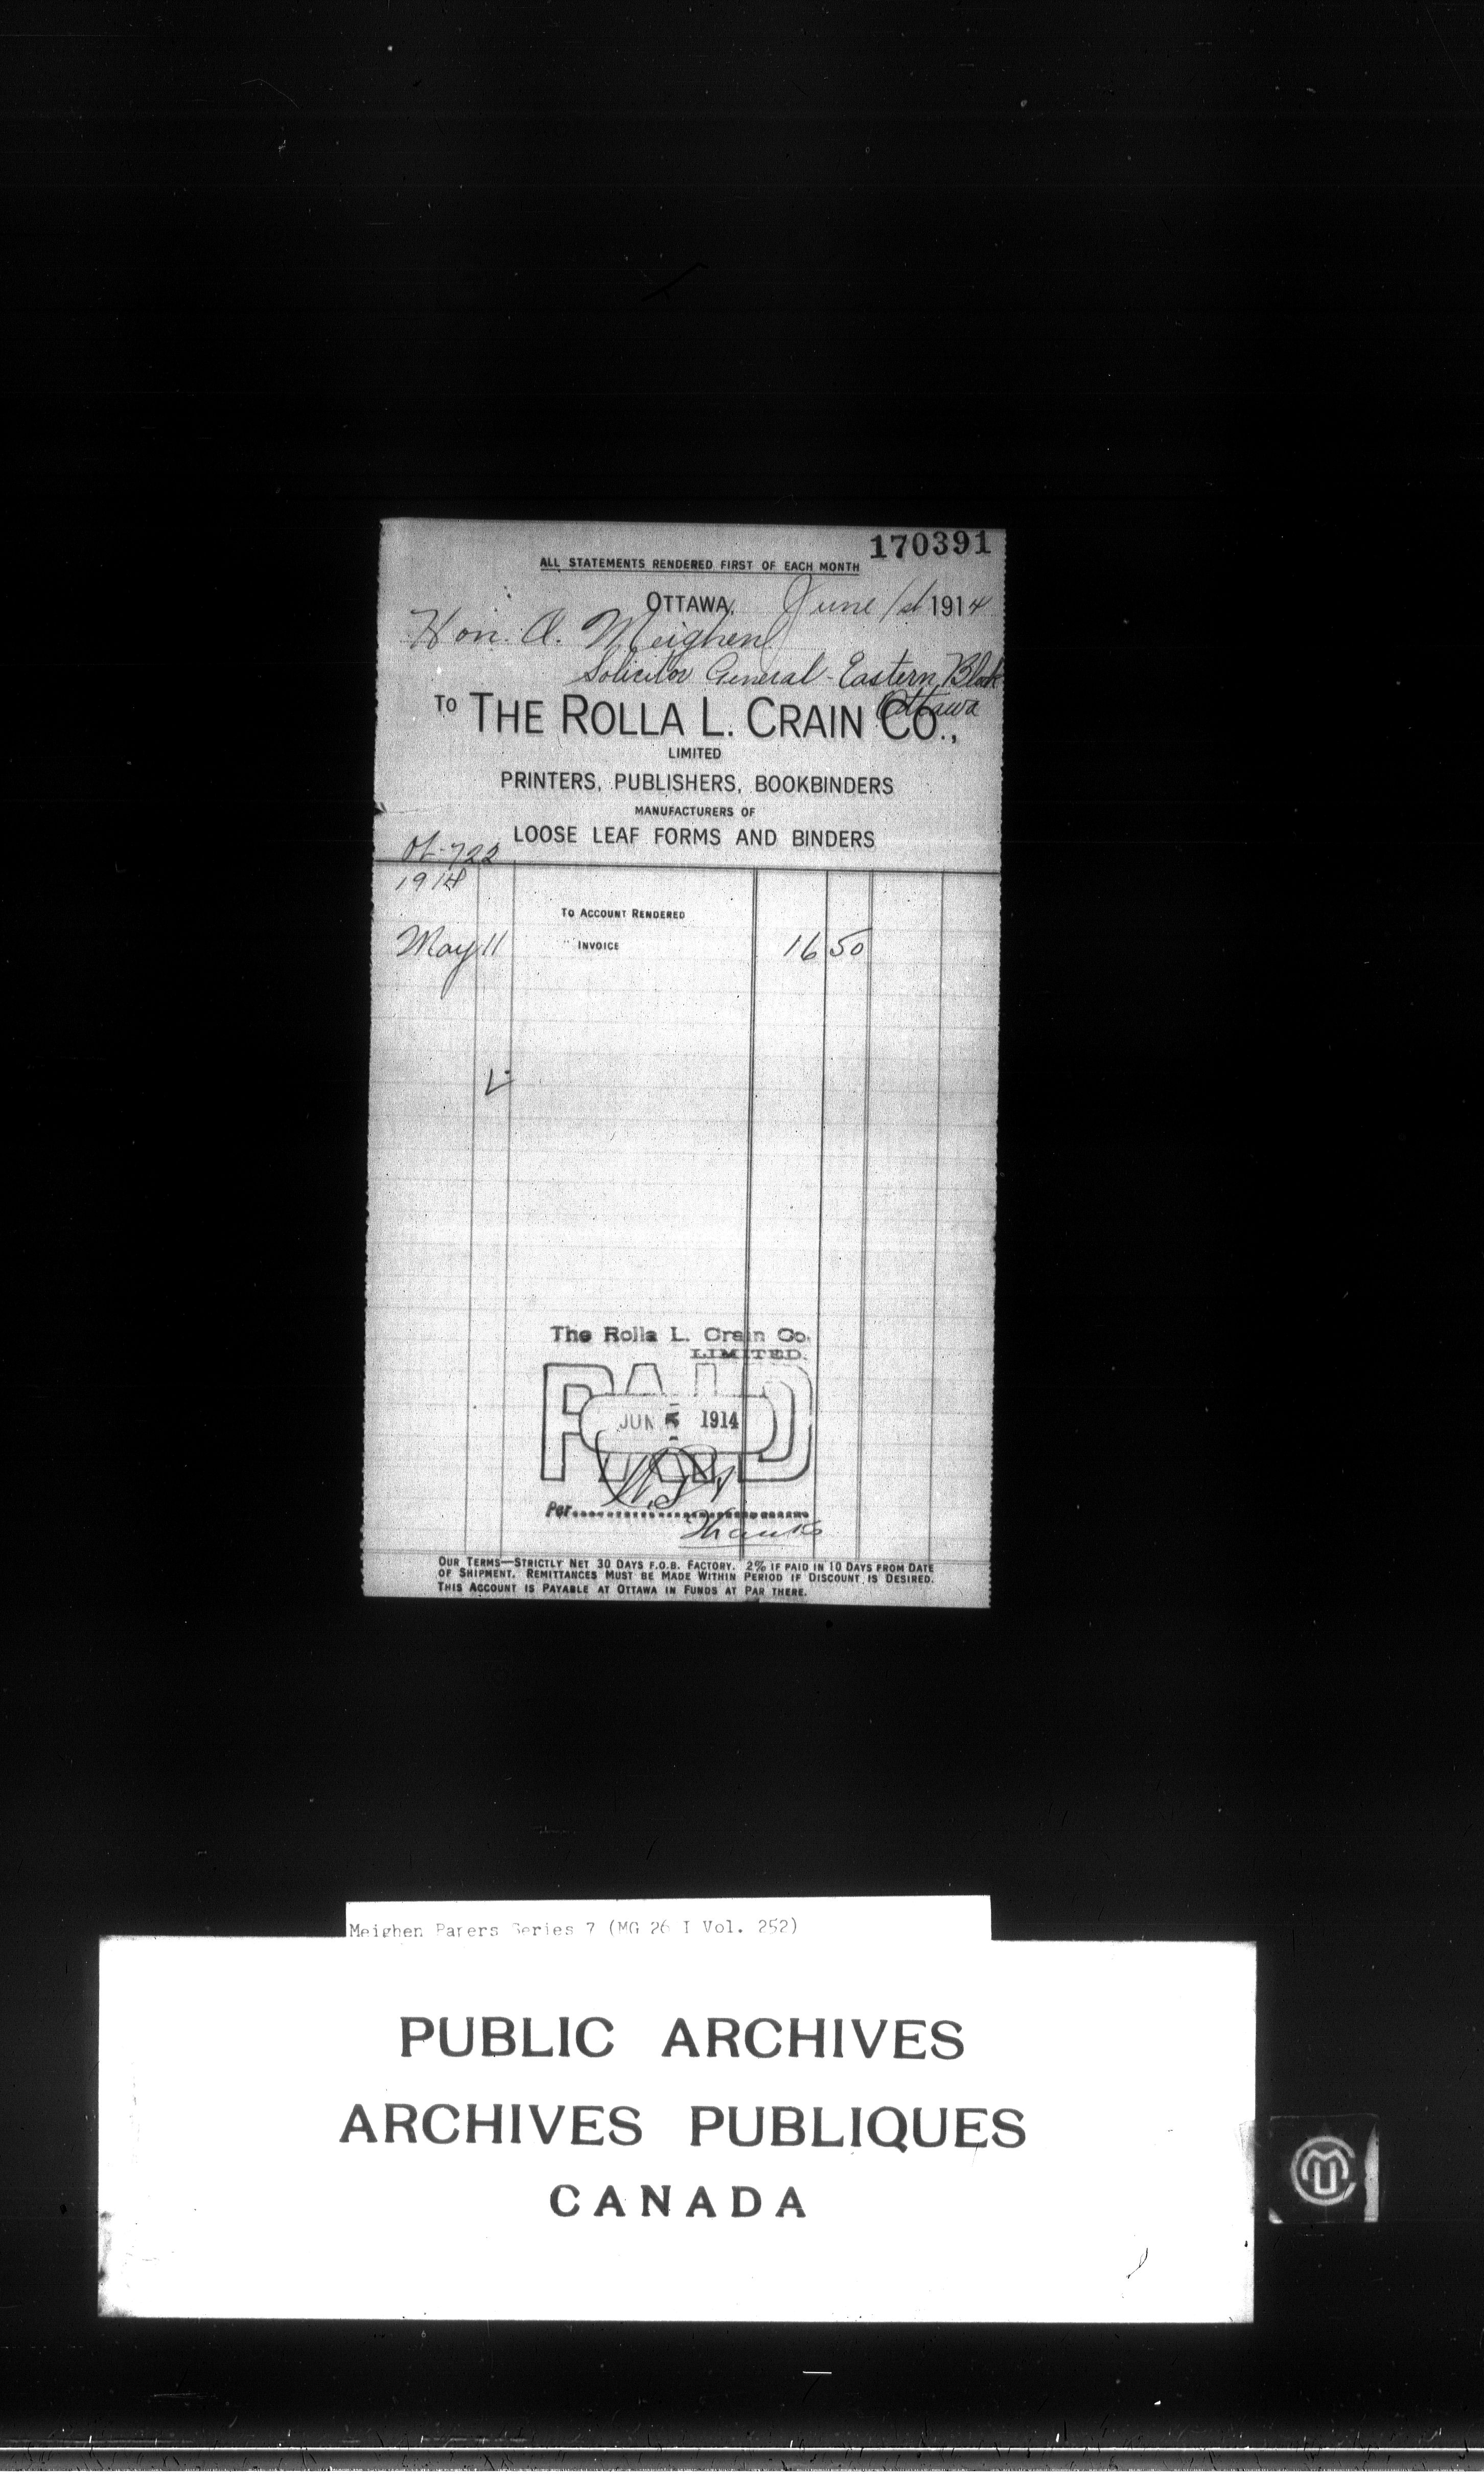 170391
ALL STATEMENTS RENDERED FIRST OF EACH MONTH
OTTAWA, June 1st 1914
Hon. A. Meighen
Solicitor General - Eastern Block
Ottawa
TO THE ROLLA L. CRAIN CO.,
LIMITED
PRINTERS, PUBLISHERS, BOOKBINDERS
MANUFACTURERS OF
LOOSE LEAF FORMS AND BINDERS
722
1914
TO ACCOUNT RENDERED
May 11 " INVOICE 16 50
The Rolla L. Crain Co.
LIMITED.
PAID
JUN 5 1914
Per
Thanks
OUR TERMS—STRICTLY NET 30 DAYS F.O.B. FACTORY. 2% IF PAID IN 10 DAYS FROM DATE
OF SHIPMENT. REMITTANCES MUST BE MADE WITHIN PERIOD IF DISCOUNT IS DESIRED.
THIS ACCOUNT IS PAYABLE AT OTTAWA IN FUNDS AT PAR THERE.
Meighen Papers Series 7 (MG 26 I Vol. 252)
PUBLIC ARCHIVES
ARCHIVES PUBLIQUES
CANADA